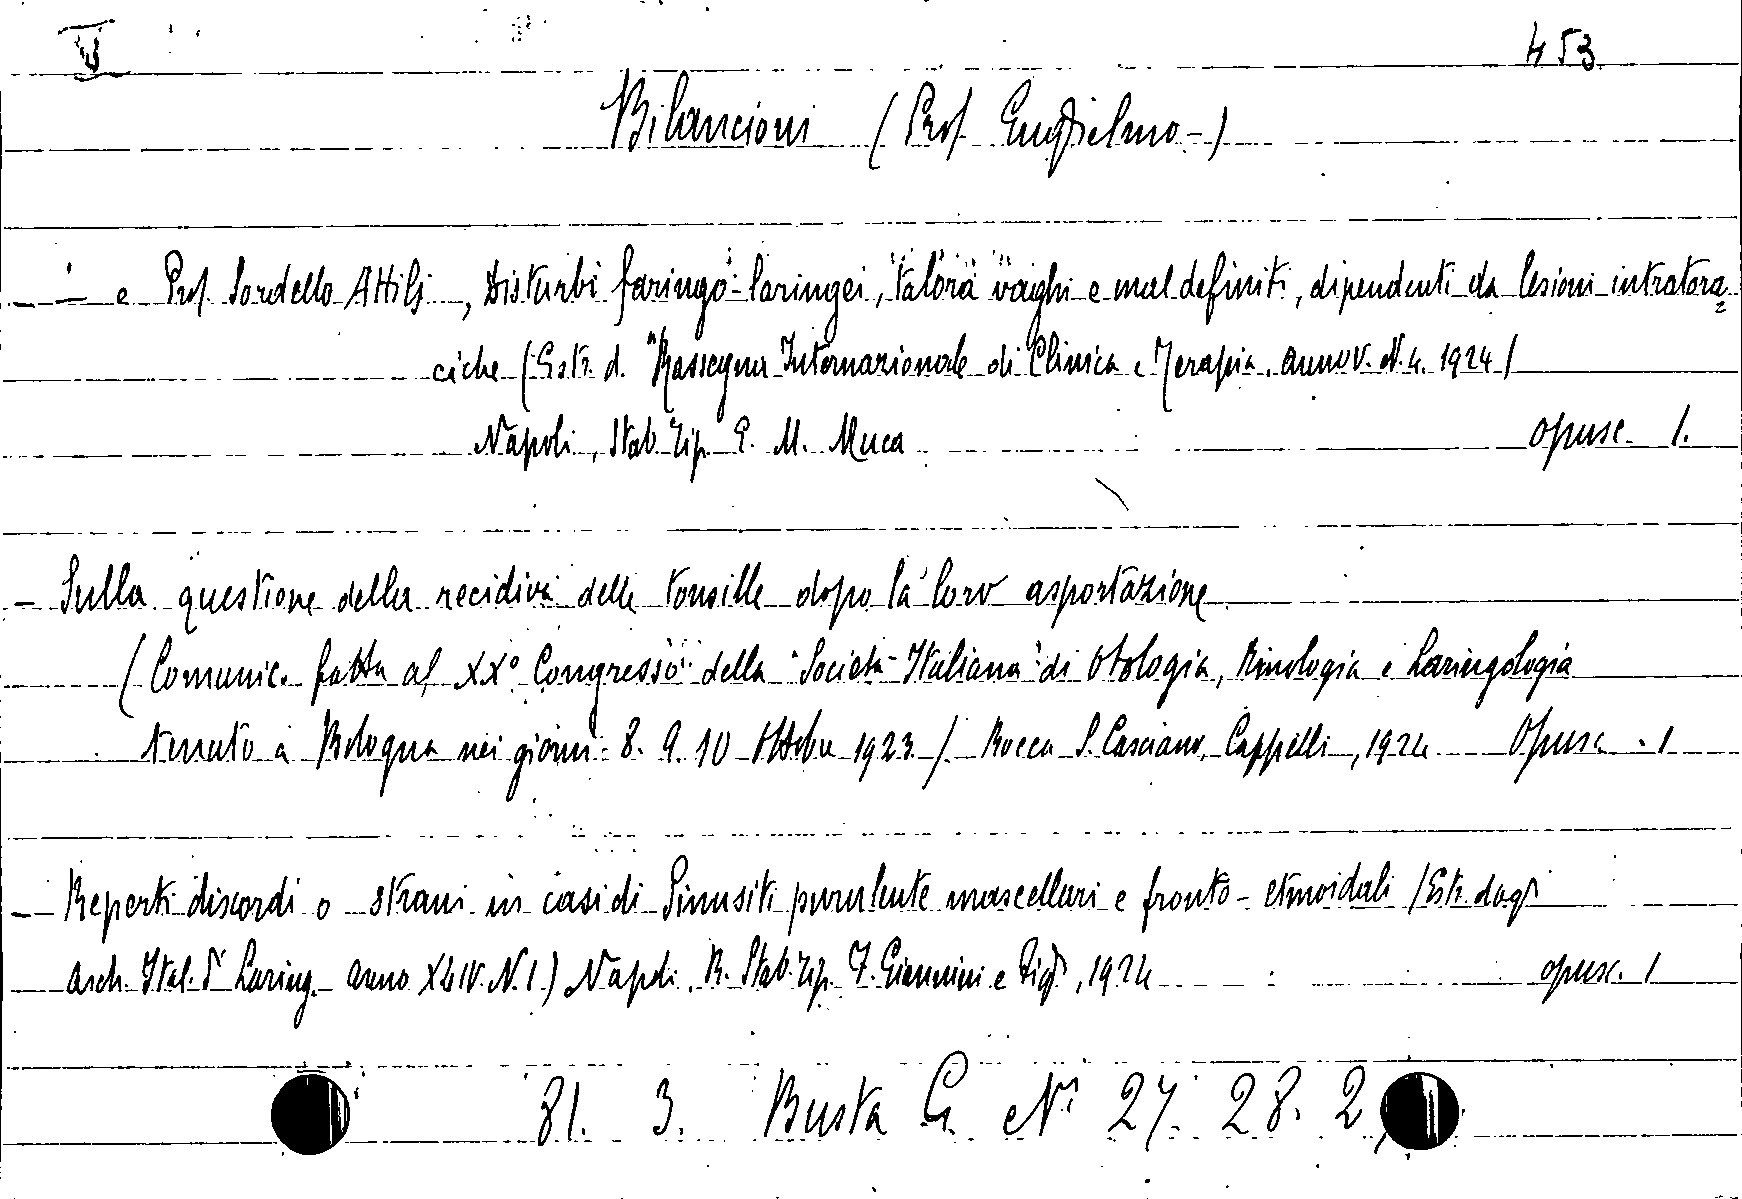 V 453.
Bilancioni (Prof. Guglielmo -)
— e Prof. Sordello Attilj, Disturbi faringo-laringei, talora vaghi e mal definiti, dipendenti da lesioni intratora=
ciche (Estr. d. "Rassegna Internazionale di Clinica e Terapia. Anno V. N. 4. 1924)
Napoli, Stab. Tip. E. M. Muca opusc. 1.
- Sulla questione della recidiva delle tonsille dopo la loro asportazione
(Comunic. fatta al XX° Congresso della "Società Italiana di Otologia, Rinologia e Laringologia
tenuto a Bologna nei giorni 8. 9. 10 Ottobre 1923). Rocca S. Casciano, Cappelli, 1924 Opusc. 1
- Reperti discordi o strani in casi di Sinusiti purulente mascellari e fronto-etmoidali (Estr. dagli
Arch. Ital. di Laring. Anno XLIV. N. 1.) Napoli. R. Stab. Tip. F. Giannini e Figli, 1924 opusc. 1
81. 3. Busta G Ni 27. 28. 2